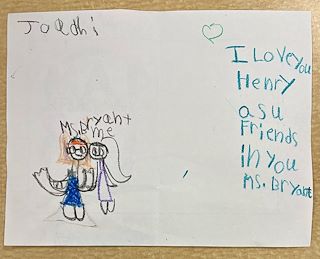 Joadhi
Ms. Bryant
me
I Love you
Henry
asu
Friends
in you
Ms. Bryant